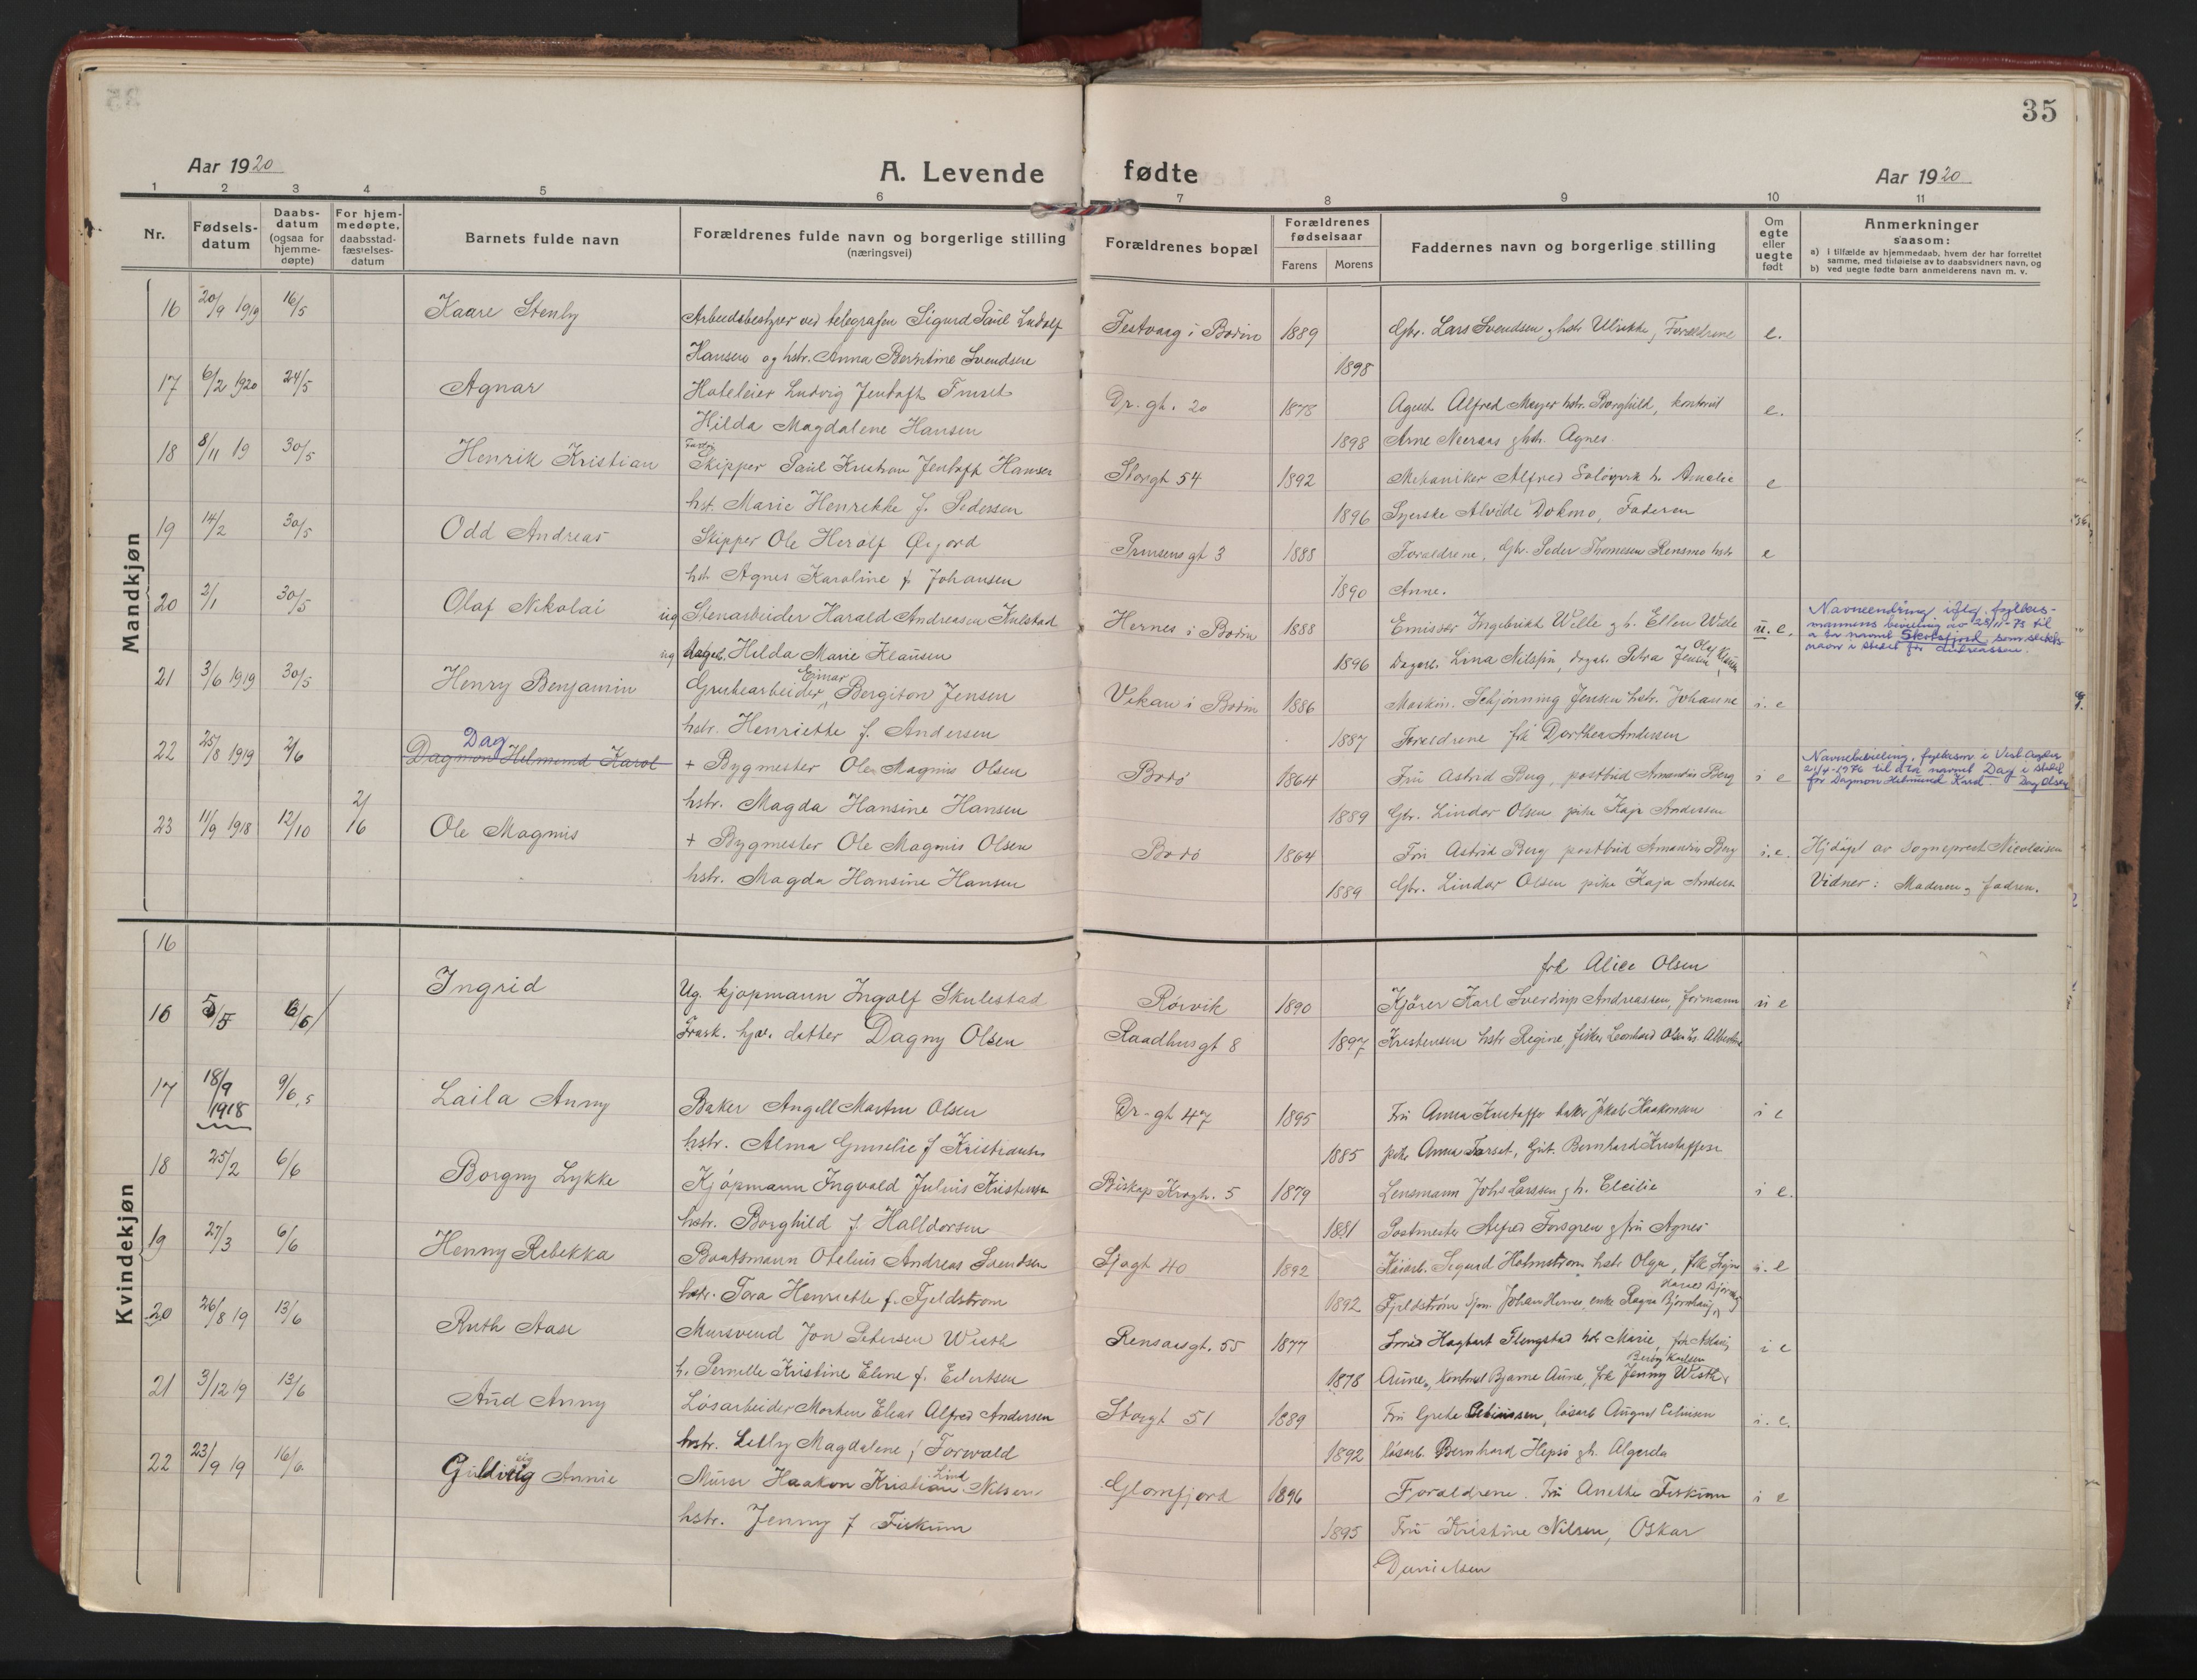 35
Aar 1920
A. Levende fødte
Aar 1920
1 2 3 4 5 6 7 8 9 10 11
Nr.
Fødsels-
datum
Daabs-
datum
(ogsaa for
hjemme-
døpte)
For hjem-
medøpte,
daabsstad-
fæstelses-
datum
Barnets fulde navn
Forældrenes fulde navn og borgerlige stilling
(næringsvei)
Forældrenes bopæl
Forældrenes
fødselsaar
Farens Morens
Faddernes navn og borgerlige stilling
Om
egte
eller
uegte
født
Anmerkninger
saasom:
a) i tilfælde av hjemmedaab, hvem der har forrettet
samme, med tilføielse av to daabsvidners navn, og
b) ved uegte fødte barn anmelderens navn m. v.
Mandkjøn
16 20/9 1919 16/5 Kaare Stenby Arbeidsbestyrer ved telegrafen Sigurd Paul Ludolf Festvaag i Bodin 1889 Gbr. Lars Svendsen g hstr Ulrikke, Forældrene e.
Hansen og hstr. Anna Berntine Svendsen 1898
17 6/2 1920 24/5 Agnar Hoteleier Ludvig Jentoft Dr. gt. 20 1878 Agent Alfred Meyer hstr. Borghild, kontorist e.
Hilda Magdalene Hansen 1898 Arne g hstr. Agnes.
18 8/11 19 30/5 Henrik Kristian Skipper Paul Kristian Jentoft Hansen Storgt 54 1892 Mekaniker Alfred h. Amalie e
hst. Marie Henrikke f. Pedersen 1896 Syerske Alvide Faderen
19 14/2 30/5 Odd Andreas Skipper Ole Herolf Prinsensgt 3 1888 Forældrene, Gbr. Peder Thomesen Rensmo hstr e
hst. Agnes Karoline f. Johansen 1890 Anne.
20 2/1 30/5 Olaf Nikolai ug Stenarbeider Harald Andreasen Hernes i Bodin 1888 Emissær Ingebrikt Wille g h. Ellen Wille u. e. Navneendring iflg. fylkes-
mannens bevilling av 28/11-73 til
a ta navnet Skotsfjord, som slekts-
navn i stedet for Andreassen.
ug Hilda Marie Klausen 1896 Dagarb. Lina Nilssen, dagarb. Petra Jensen, Olaf Klausen
21 3/6 1919 30/5 Henry Benjamin Grubearbeider Einar Bergiton Jensen Vikan i Bodin 1886 Maskin. Schjønning Jensen hstr. Johanne i. e
hstr. Henriette f. Andersen 1887 Forældrene frk Dorthea Andersen
22 25/8 1919 2/6 Dag Dagmon Helmund Karol + Bygmester Ole Magnus Olsen Bodø 1864 Fru Astrid Berg, postbud Amandus Berg i e Navnebevilling, fylkesm. i Vest-Agder
21/4-1976 til å ta navnet Dag i stedet
for Dagmon Helmund Karol. Dag Olsen
hstr. Magda Hansine Hansen 1889 Gbr. Lindor Olsen pike Kaja Andersen
23 11/9 1918 12/10 2/6 Ole Magnus + Bygmester Ole Magnus Olsen Bodø 1864 Fru Astrid Berg postbud Amandus Berg i. e. Hj.døpt av Sogneprest Nicolaisen
hstr. Magda Hansine Hansen 1889 Gbr. Lindor Olsen pike Kaja Anders Vidner: Moderen g fadren.
Kvindekjøn
16
frk Alice Olsen
16 5/5 6/6 Ingrid Ug. kjøpmann Ingolf Skulestad Rørvik 1890 Kjører Karl Sverdrup Andreassen, formann u e
hjv. datter Dagny Olsen Raadhusgt 8 1897 Kristensen hstr Regine, fisker Leonhard Olsen
17 18/9 1918 9/6 Laila Anny Baker Angell Martin Olsen Dr.-gt 47 1895 Fru Anna baker Jakob Haakonsen i e
hstr. Alma f Kristiansen 1885 pike Anna Forset, Gut. Bernhard
18 25/2 6/6 Borgny Lykke Kjøpmann Ingvald Julius Kristensen Biskop Kroghs. 5 1879 Lensmann Johs Larssen g h. Elcilie i e.
hstr. Borghild f. Halldorsen 1881 Postmester Alfred Forsgren g fru Agnes
19 27/3 6/6 Henny Rebekka Baatsmann Otelius Andreas Svendsen Sjøgt 40 1892 Sigurd Holmstrøm hstr Olga, frk Signe i. e
hstr. Tora Henriette f. Fjeldstrøm 1892 Fjeldstrøm Johan Hernes, enke Ragna
20 26/8 19 13/6 Ruth Aase Mursvend Jon Petersen Wisth Rensaasgt. 55 1877 Smed Hagbart Flengstad hstr Marie, frk Aslaug i e
h. Pernelle Kristine Eline f. Eilertsen 1878 Aune, Bjarne Aune, frk Jenny Wisth Karlsen
21 3/12 19 13/6 Aud Anny Løsarbeider Morten Elias Alfred Andersen Storgt 51 1889 Fru Grete løsarb August i. e.
hstr. Lilly Magdalene f Forwald 1892 løsarb. Bernhard Hepsø g h. Algerda
22 23/9 19 16/6 Guldveig Annie Murer Haakon Kristian Lind Nilsen Glomfjord 1896 Forældrene. Fru Anette Fiskum i e
hstr. Jenny f Fiskum 1895 Fru Kristine Nilsen, Oskar
Danielsen